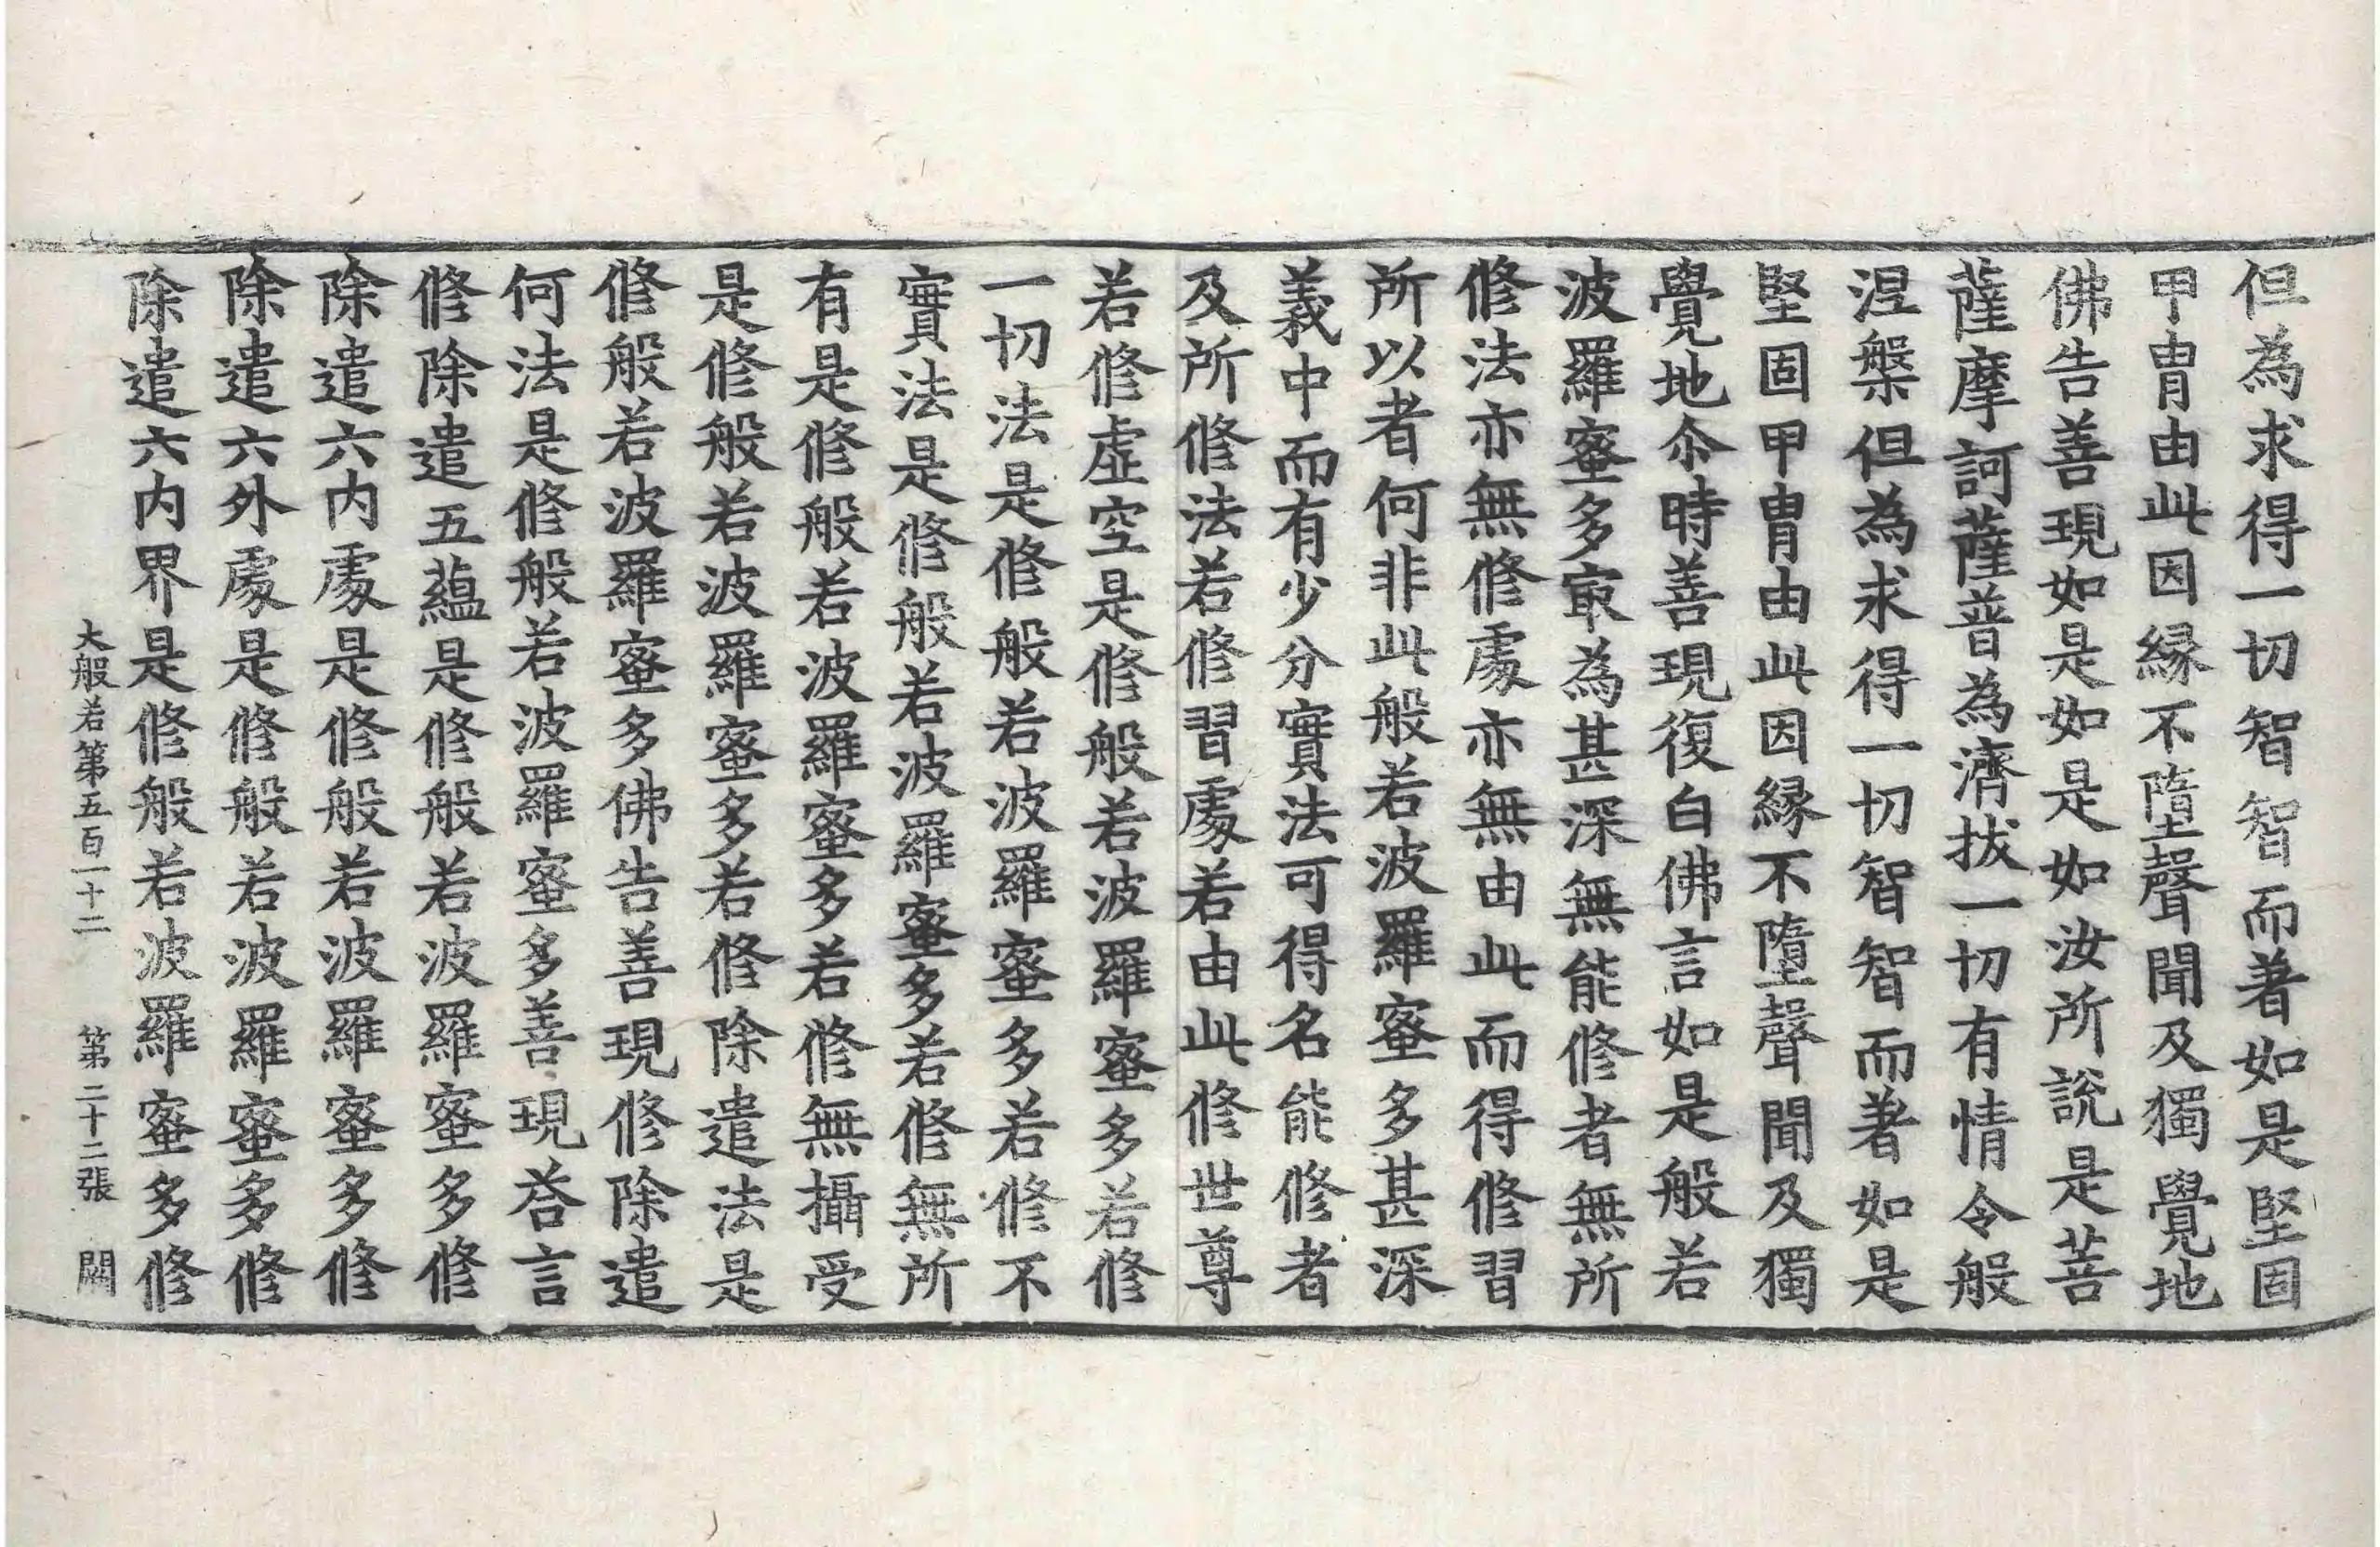 但為求得一切智智而著如是堅固
甲冑由此因緣不墮聲聞及獨覺地
佛告善現如是如是如汝所說是菩
薩摩訶薩普為濟拔一切有情令般
涅槃但為求得一切智智而著如是
堅固甲冑由此因緣不墮聲聞及獨
覺地尒時善現復白佛言如是般若
波羅蜜多㝡為甚深無能修者無所
修法亦無修處亦無由此而得修習
所以者何非此般若波羅蜜多甚深
義中而有少分實法可得名能修者
及所修法若修習處若由此修世尊
若修虛空是修般若波羅蜜多若修
一切法是修般若波羅蜜多若修不
實法是修般若波羅蜜多若修無所
有是修般若波羅蜜多若修無攝受
是修般若波羅蜜多若修除遣法是
修般若波羅蜜多佛告善現修除遣
何法是修般若波羅蜜多善現荅言
修除遣五蘊是修般若波羅蜜多修
除遣六內處是修般若波羅蜜多修
除遣六外處是修般若波羅蜜多修
除遣六內界是修般若波羅蜜多修
大般若第五百一十二 第二十二張 闕